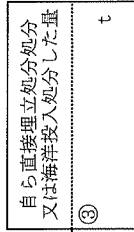 自ら直接埋立処分処分
又は海洋投入処分した量
③
t